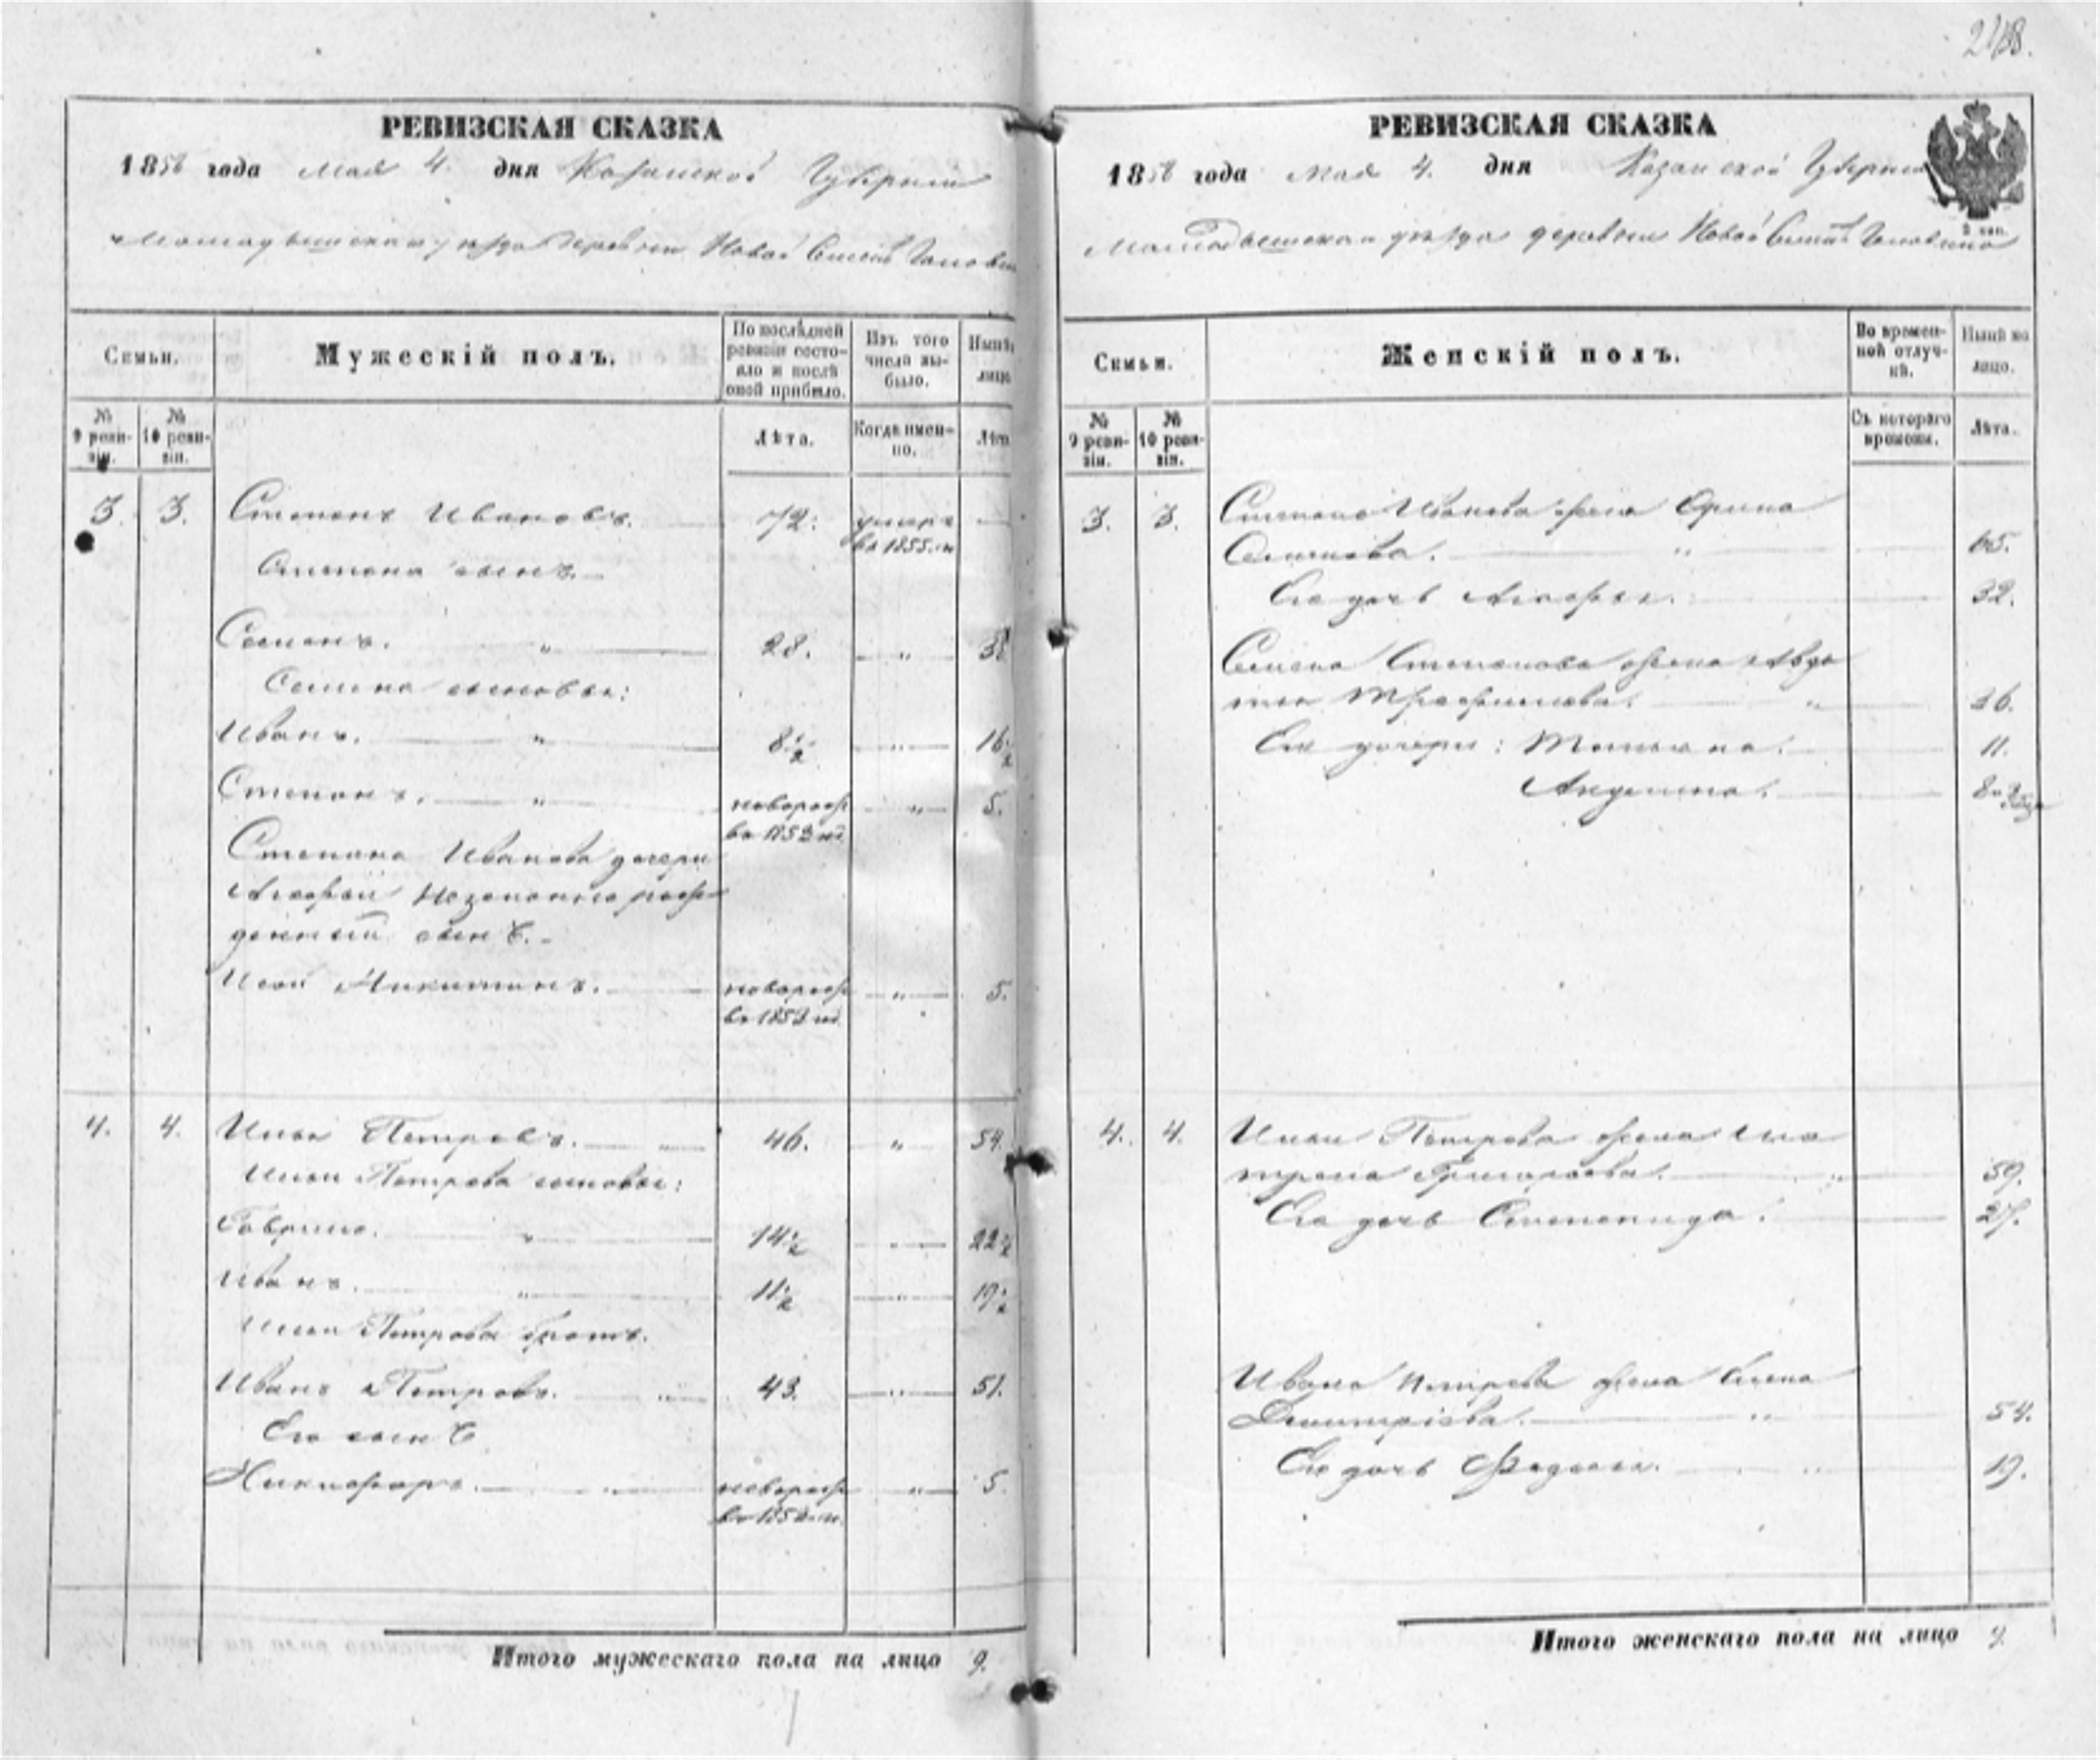 248.
РЕВИЗСКАЯ СКАЗКА
1858 года мая 4. дня Казанской Губернии
уезда деревни Новой
Семьи.
Мужескій полъ.
По послѣдней ревизіи состояло и послѣ оной прибыло.
Изъ того числа выбыло.
Нынѣ
лицо
№ 9 ревизіи.
№ 10 ревизіи.
Лѣта.
Когда именно.
Лѣта
3. 3. Степанъ Ивановъ. 72. умеръ —
въ 1855.
Степана сынъ.
Семенъ. " 28. " 36
Семена сыновья:
Иванъ. " 8 1/2 " 16 1/2
Степанъ. " новорож " 5.
въ 1853
Степана Иванова дочери
незаконно рож
денный сынъ.
Никитинъ. новорож " 5.
въ 1853
4. 4. Илья Петровъ. " 46. " 54.
Ильи Петрова сыновья:
Гаврило. " 14 1/2 " 22 1/2
Иванъ. " 11 1/2 " 19 1/2
Ильи Петрова братъ.
Иванъ Петровъ. " 43. " 51.
Его сынъ
Никифоръ. " новорож " 5
Итого мужескаго пола на лицо 9.
РЕВИЗСКАЯ СКАЗКА
1858 года мая 4. дня Казанской Губернии
уезда деревни Новой
2 коп.
Семьи.
Женскій полъ.
Во временной отлучкѣ.
Нынѣ на лицо.
№ 9 ревизіи.
№ 10 ревизіи.
Съ котораго времени.
Лѣта.
3. 3. Степана Иванова жена Орина
Семенова. " 65.
Его дочь 32.
Семена Степанова жена Авдо
тья Трофимова. " 36.
Его дочери: Татьяна. 11.
Акулина. 8
4. 4. Ильи Петрова жена Ма
трена Григорьева. " 59.
Его дочь Степанида. 27.
Ивана Петрова жена
Дмитріева. " 54.
Его дочь 19.
Итого женскаго пола на лицо